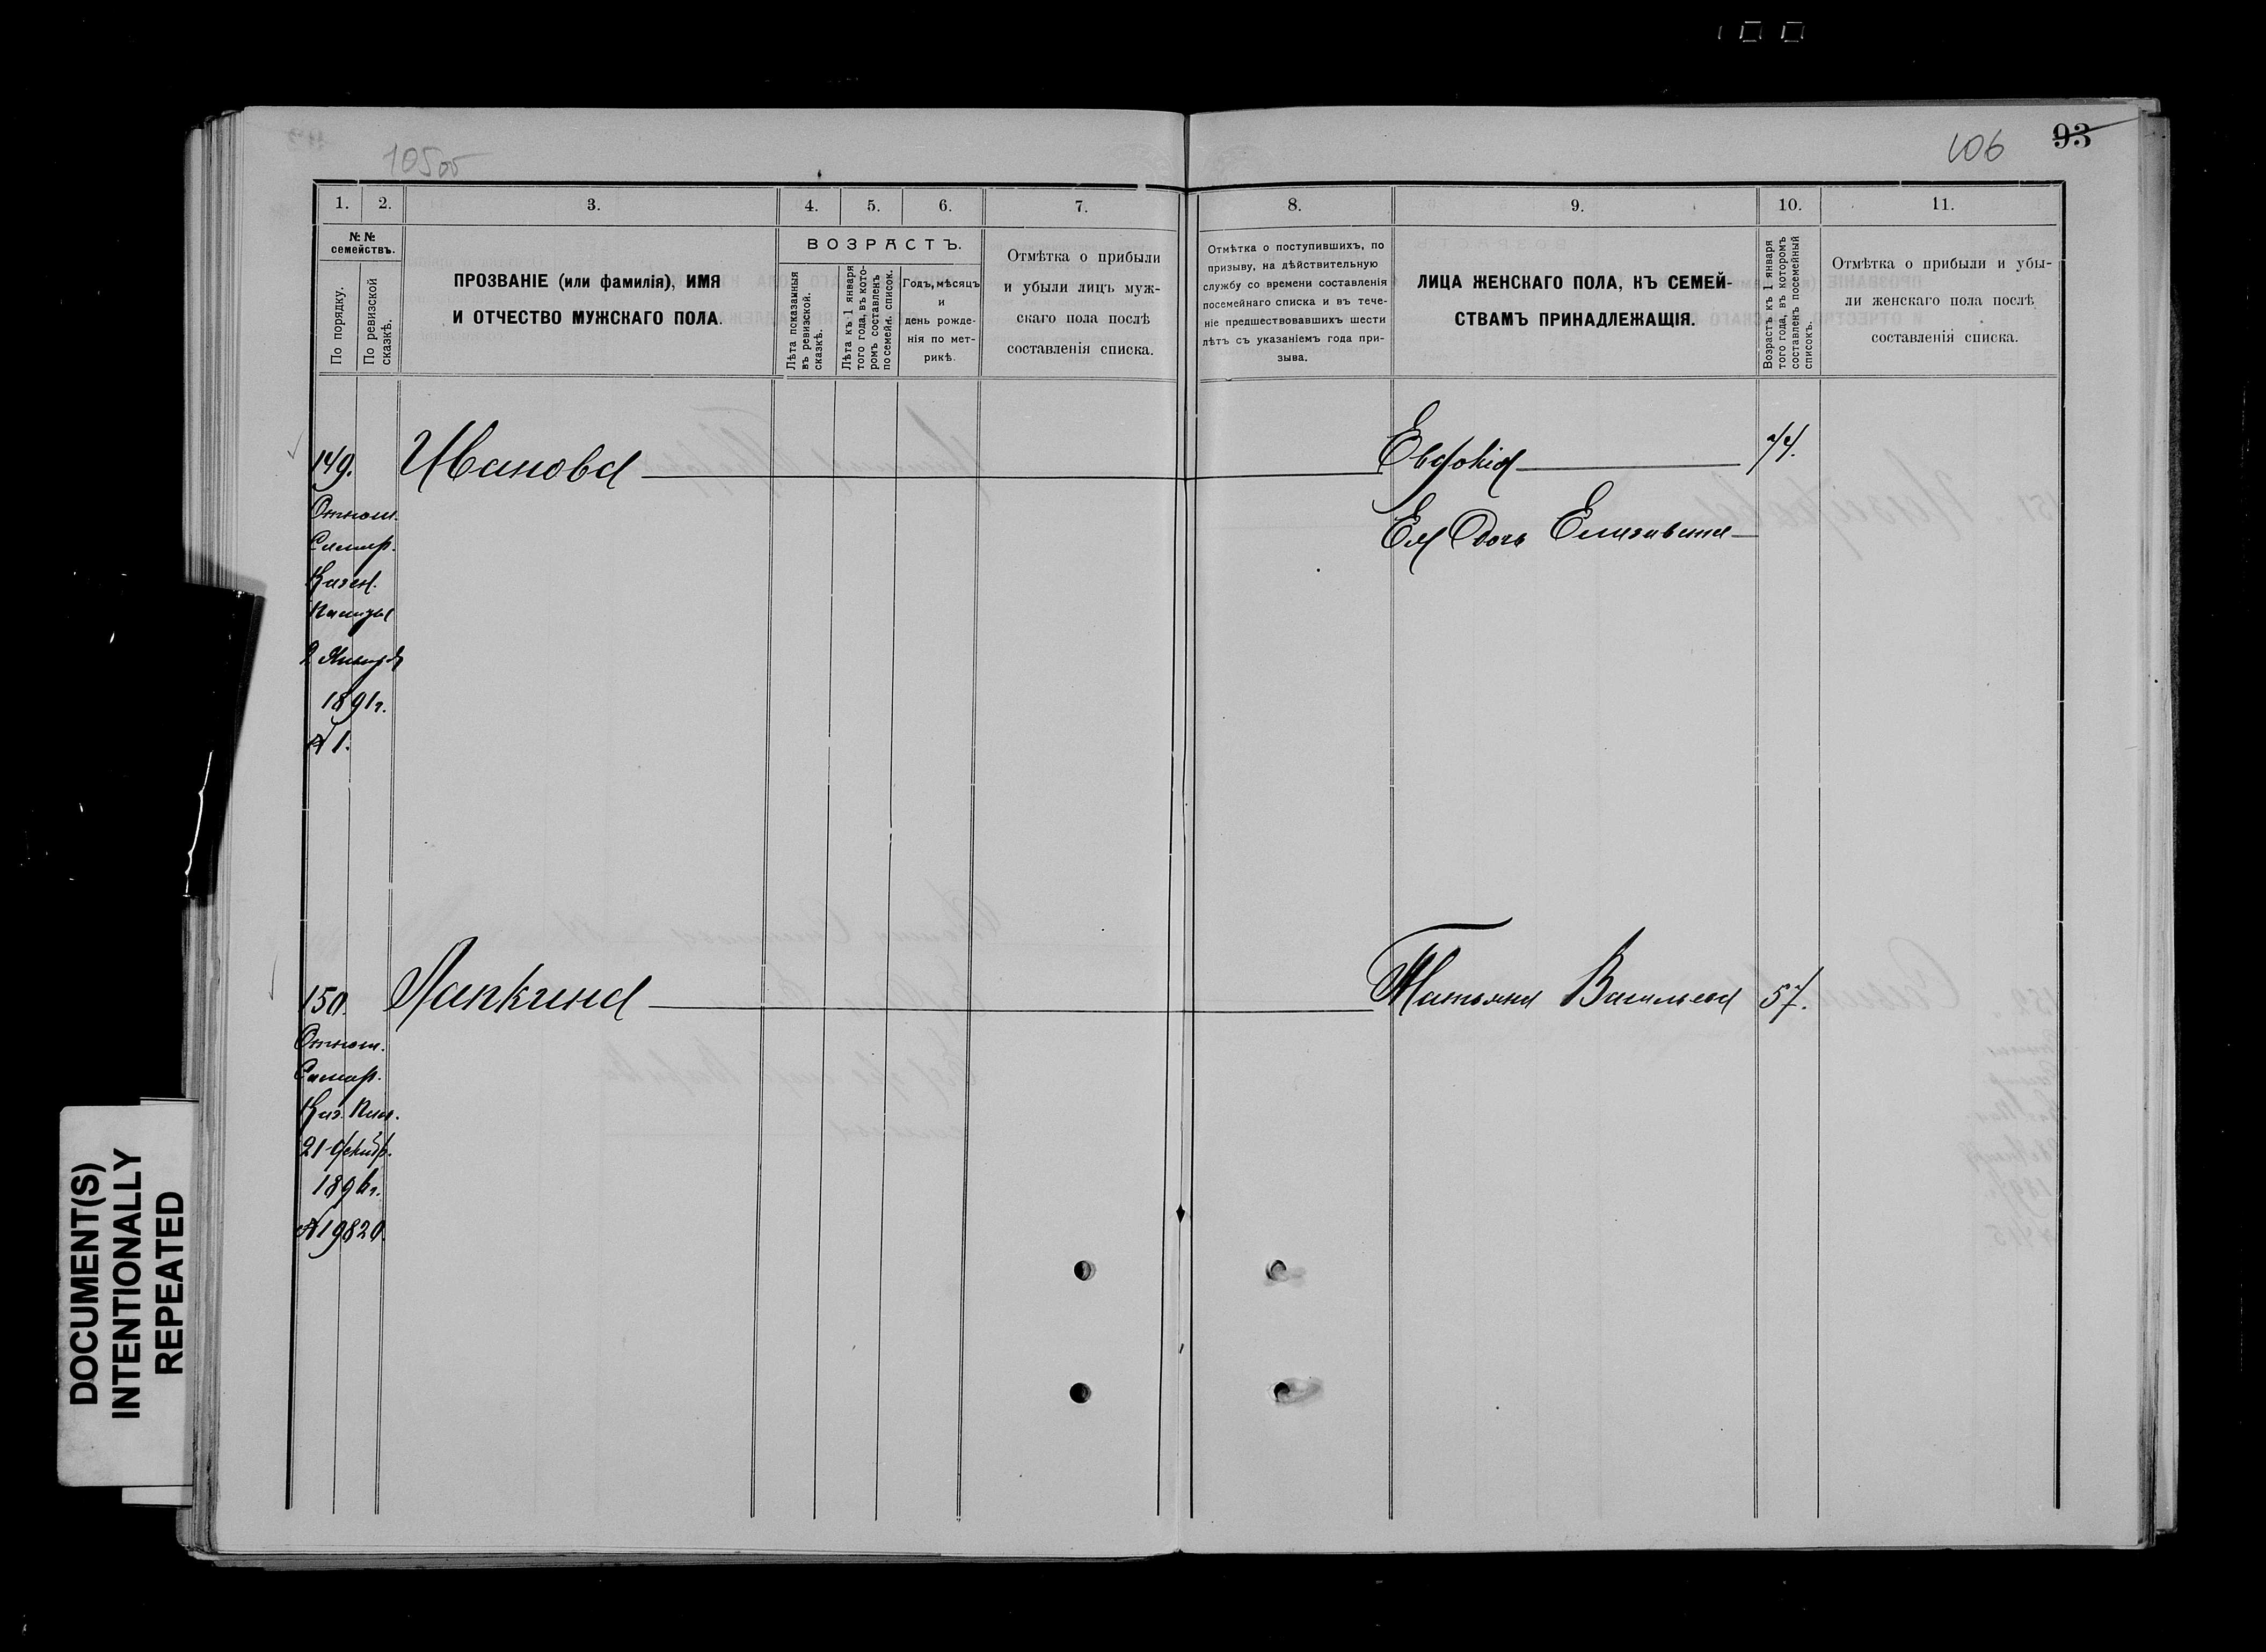 105об
106 93
1. 2. 3. 4. 5. 6. 7. 8. 9. 10. 11.
№№ семействъ.
По порядку.
По ревизской сказкѣ.
ПРОЗВАНІЕ (или фамилія), ИМЯ
И ОТЧЕСТВО МУЖСКАГО ПОЛА.
ВОЗРАСТЪ.
Лѣта показанныя
въ ревизской.
сказкѣ.
Лѣта къ 1 января
того года, въ кото-
ромъ составленъ
посемейн. список.
Годъ, мѣсяцъ
и
день рожде-
нія по мет-
рикѣ.
Отмѣтка о прибыли
и убыли лицъ муж-
скаго пола послѣ
составленія списка.
Отмѣтка о поступившихъ, по
призыву, на дѣйствительную
службу со времени составленія
посемейнаго списка и въ тече-
ніе предшествовавшихъ шести
лѣтъ съ указаніемъ года при-
зыва.
ЛИЦА ЖЕНСКАГО ПОЛА, КЪ СЕМЕЙ-
СТВАМЪ ПРИНАДЛЕЖАЩІЯ.
Возрастъ къ 1 января
того года, въ которомъ
составленъ посемейный
списокъ.
Отмѣтка о прибыли и убы-
ли женскаго пола послѣ
составленія списка.
149. Иванова Евдокія 74.
Ея Дочь Елизавета
Отнош.
Самар.
Казен.
Палаты
2 Января
1891г.
№ 1.
150. Лапкина Татьяна Васильева 57.
Отнош.
Самар.
Каз. Пал.
21 Декабр.
1896г.
№ 19820.
DOCUMENT(S)
INTENTIONALLY
REPEATED